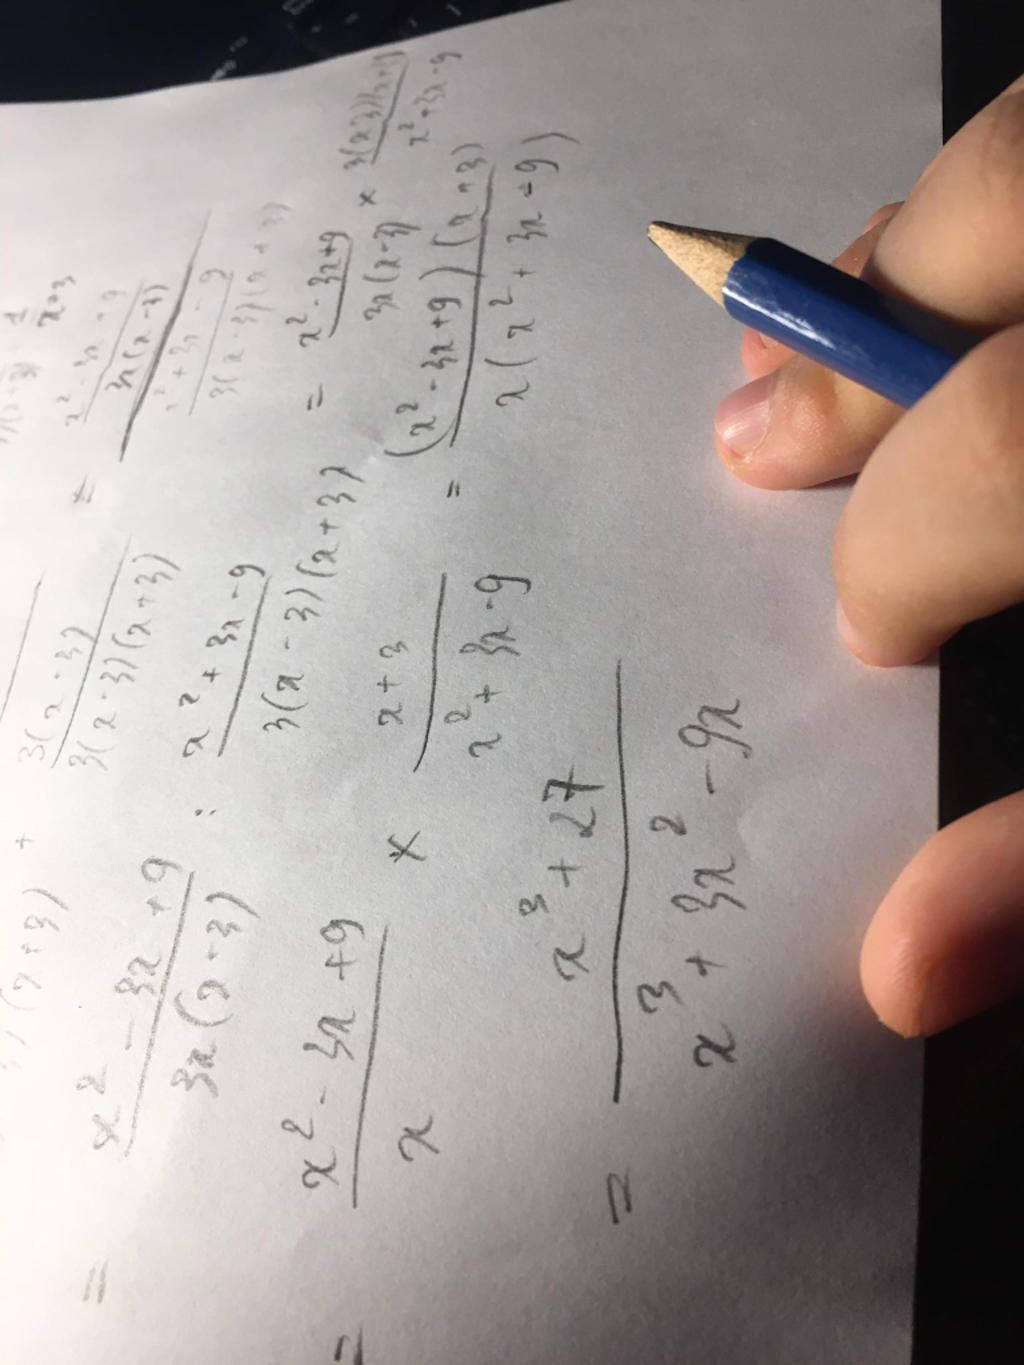 x+3
(x+3) + 3(x-3) / 3(x-3)(x+3) = x² - 3x + 9 / 3x(x-3) / x² + 3x - 9 / 3(x-3)(x+3)
= x² - 3x + 9 / 3x(x-3) : x² + 3x - 9 / 3(x-3)(x+3) = x² - 3x + 9 / 3x(x-3) × 3(x-3)(x+3) / x² + 3x - 9
= x² - 3x + 9 / x × x+3 / x² + 3x - 9 = (x² - 3x + 9)(x+3) / x(x² + 3x - 9)
= x³ + 27 / x³ + 3x² - 9x